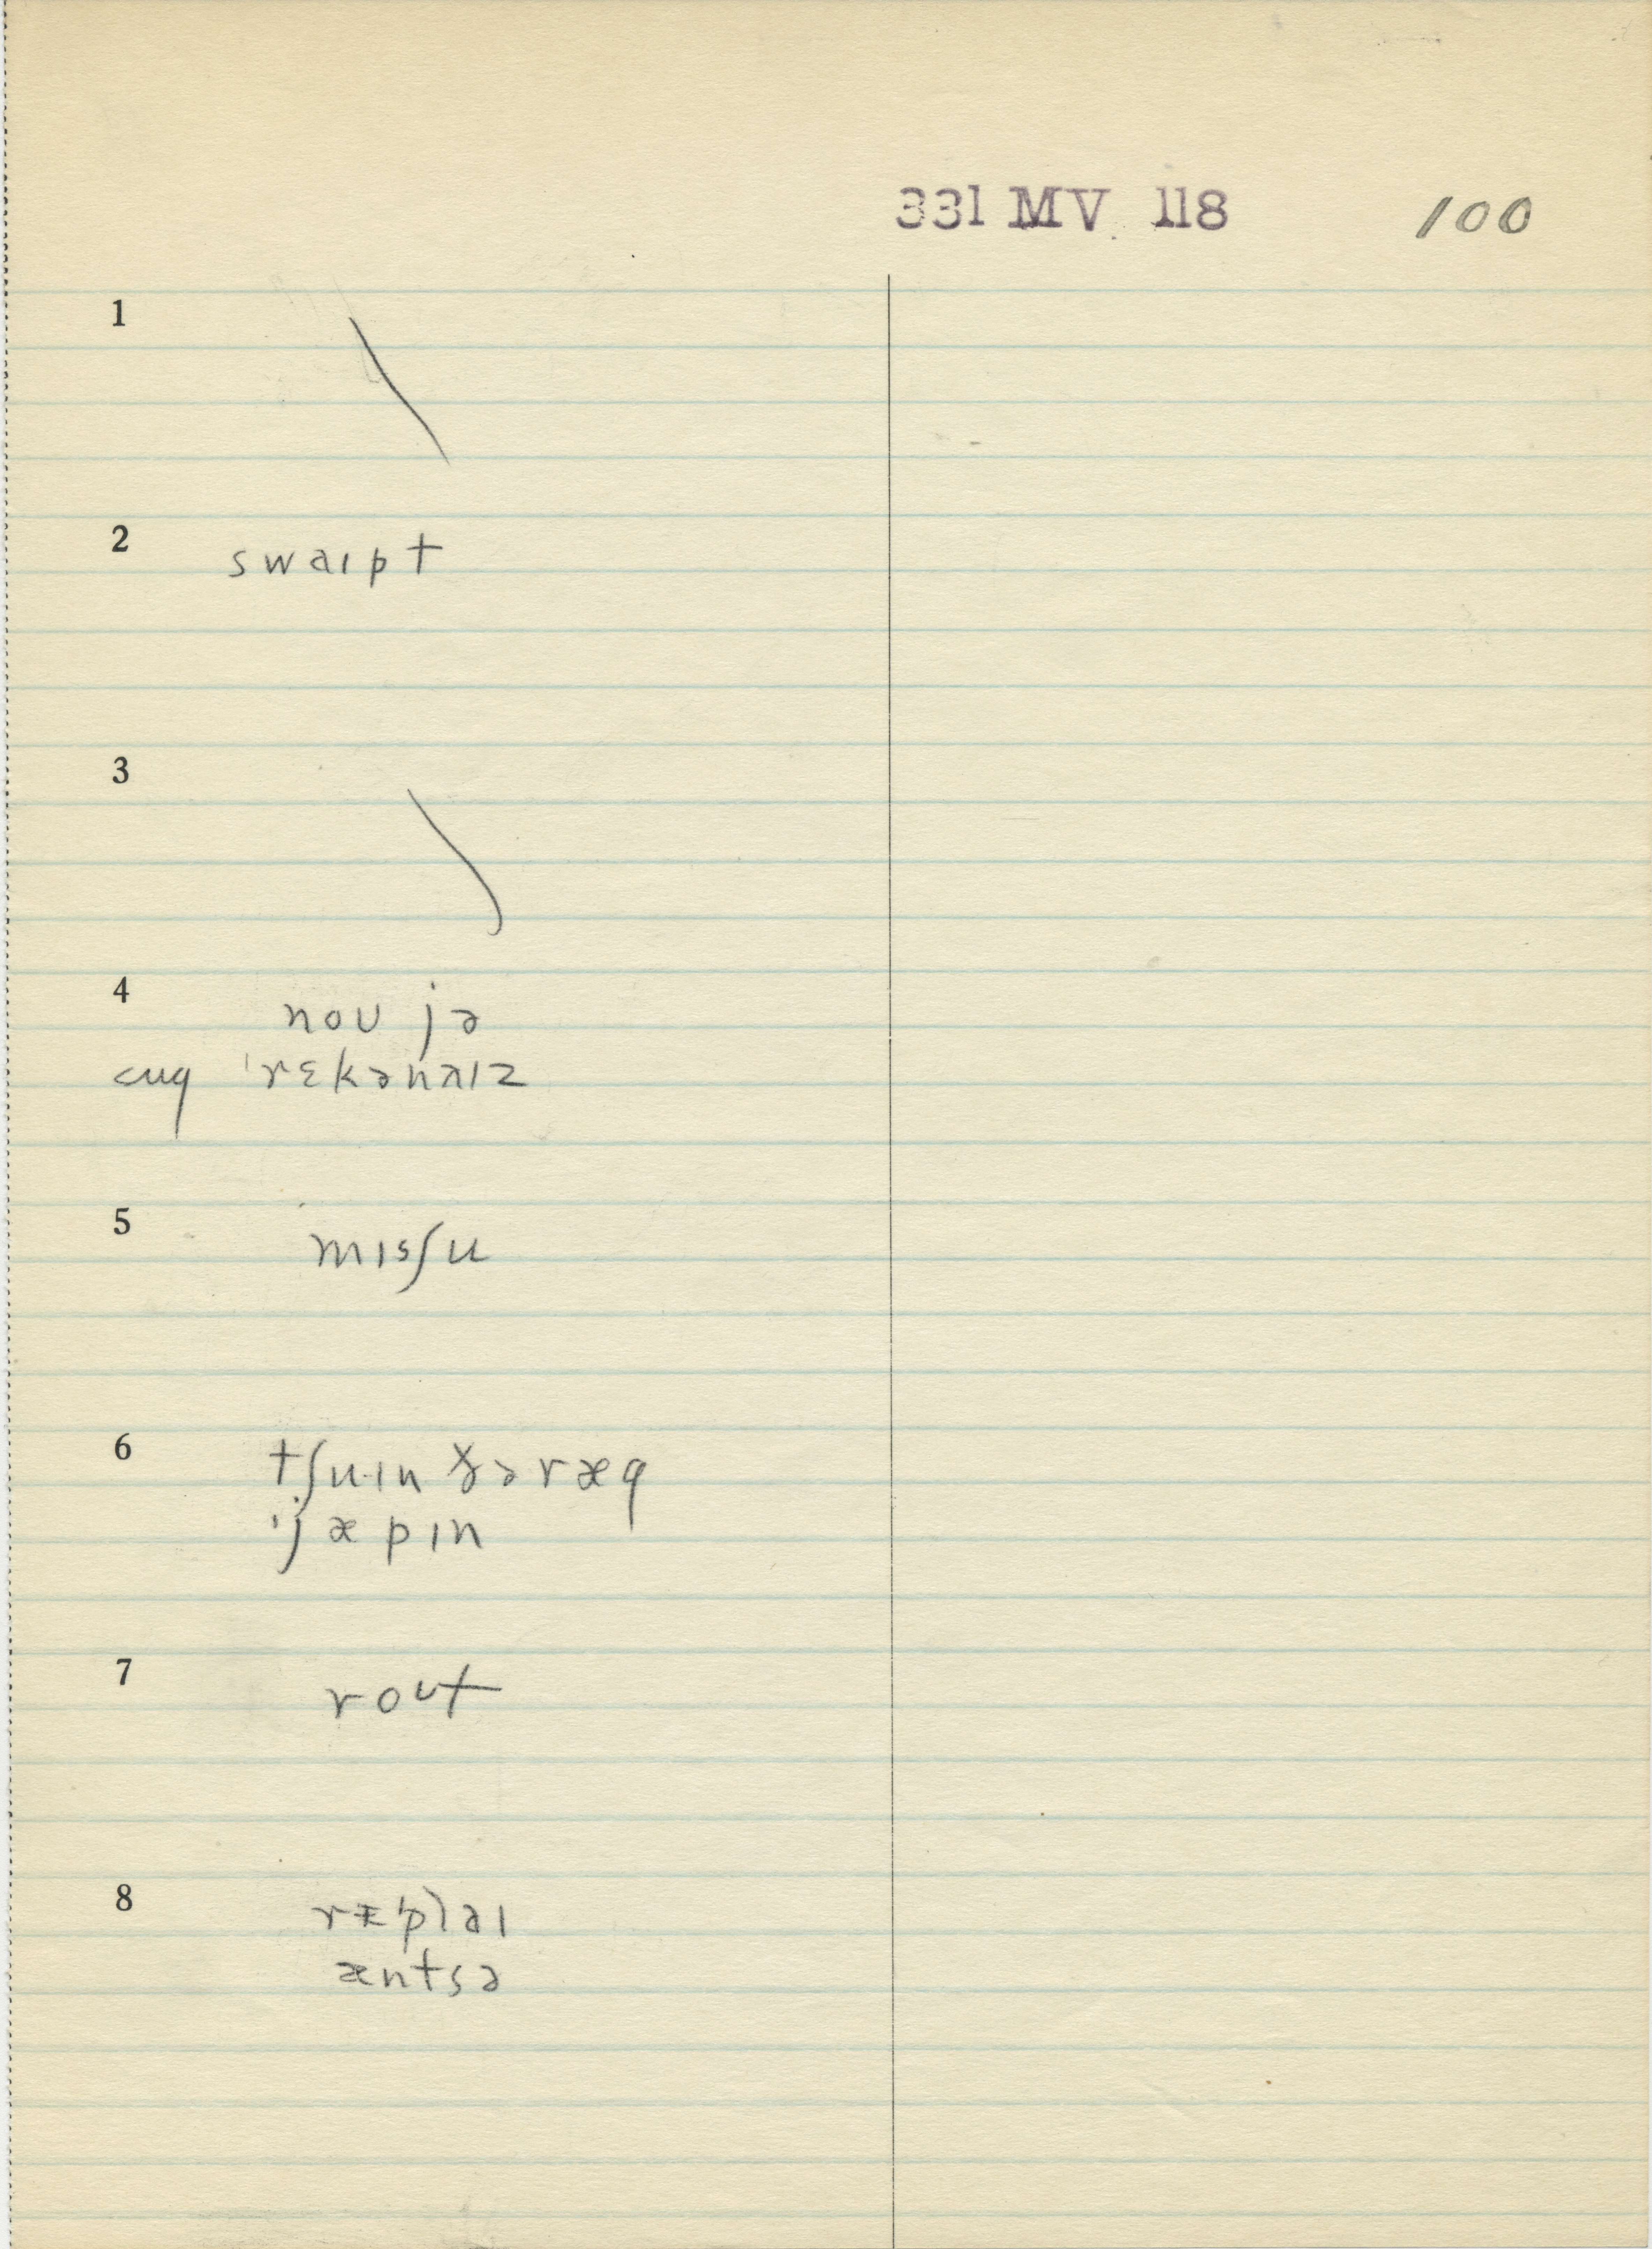 331 MV 118 100
1
2 swaɪpt
3
4 noʊ jə
cug ˈrɛkənaɪz
5 mɪsʃu
6 tʃuɪn ðə ræg
ˈjæpɪn
7 roʊt
8 rɪˈplaɪ
æntsə